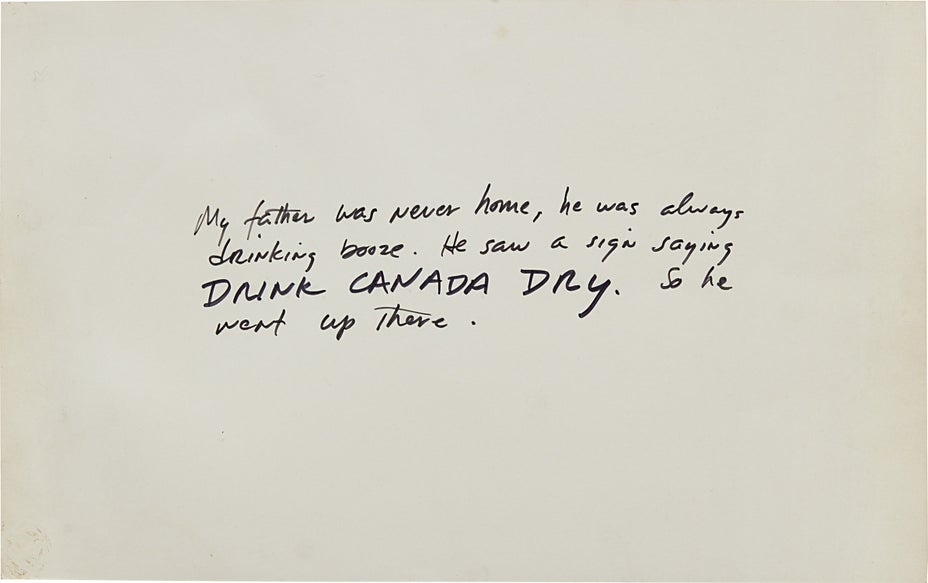 My father was never home, he was always
drinking booze. He saw a sign saying
DRINK CANADA DRY. So he
went up there.